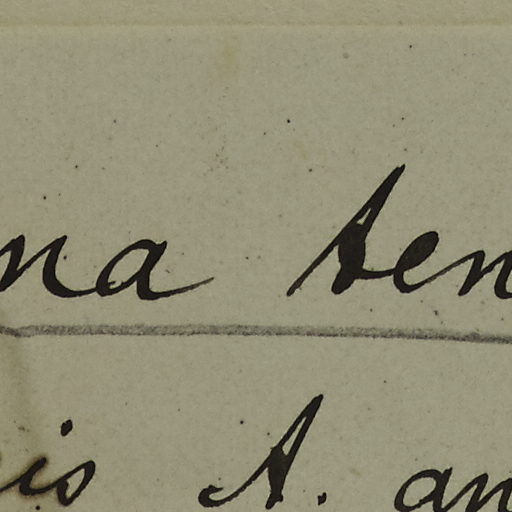 na ten
is A. an